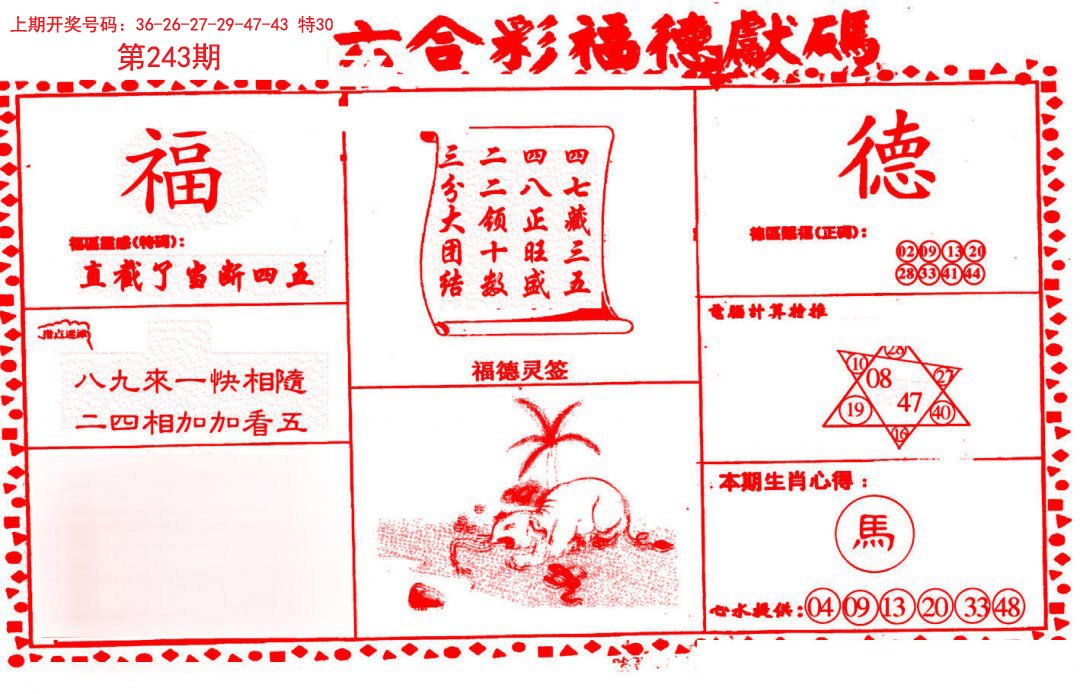 上期开奖号码：36-26-27-29-47-43 特30
第243期
六合彩福德獻碼
福
福區靈感(特碼)：
直截了当断四五
指点迷津
八九來一快相隨
二四相加加看五
四七藏三五
四八正旺盛
二二领十数
三分大团结
福德灵签
德
德區賜福(正碼)：
02 09 13 20
28 33 41 44
電腦計算特推
10 28 27
08
47
19 40
16
本期生肖心得：
馬
心水提供：04 09 13 20 33 48